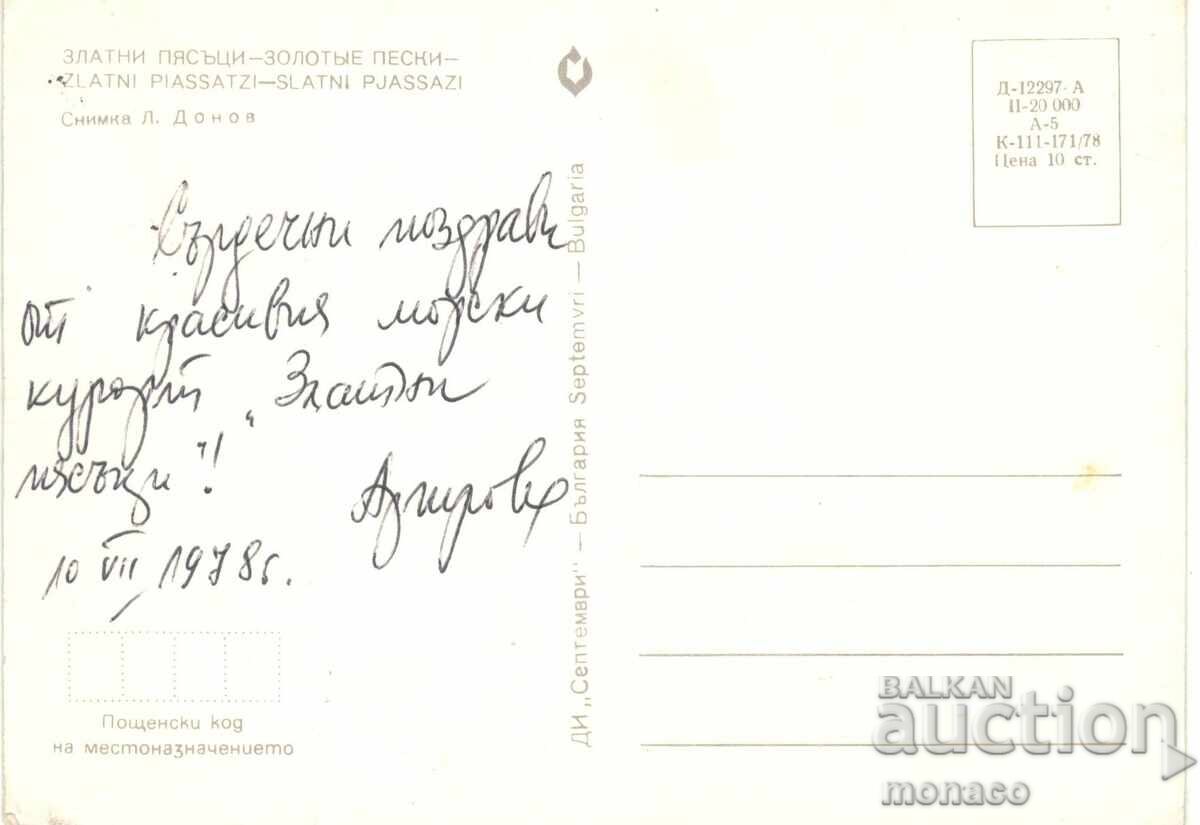 ЗЛАТНИ ПЯСЪЦИ—ЗОЛОТЫЕ ПЕСКИ—
ZLATNI PIASSATZI—SLATNI PJASSAZI
Снимка Л. Донов
Сърдечни поздрави
от красивия морски
курорт „Златни
пясъци"!
10 VII 1978 г.
Пощенски код
на местоназначението
ДИ „Септември" — България Septemvri — Bulgaria
Д-12297-А
II-20 000
А-5
К-111-171/78
Цена 10 ст.
BALKAN
auction
monaco